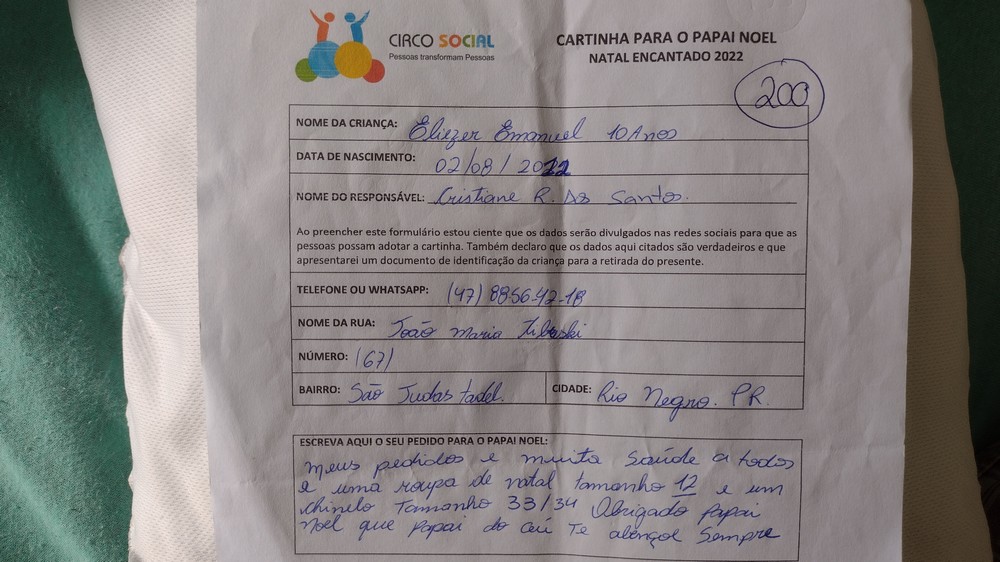 CIRCO SOCIAL
Pessoas transformam Pessoas
CARTINHA PARA O PAPAI NOEL
NATAL ENCANTADO 2022
200
NOME DA CRIANÇA: Eliezer Emanuel 10 Anos
DATA DE NASCIMENTO: 02/08/2012
NOME DO RESPONSÁVEL: Cristiane R. Dos Santos.
Ao preencher este formulário estou ciente que os dados serão divulgados nas redes sociais para que as
pessoas possam adotar a cartinha. Também declaro que os dados aqui citados são verdadeiros e que
apresentarei um documento de identificação da criança para a retirada do presente.
TELEFONE OU WHATSAPP: (47) 8856-42-18
NOME DA RUA: João Maria
NÚMERO: 167
BAIRRO: São Judas tadel. CIDADE: Rio Negro. PR.
ESCREVA AQUI O SEU PEDIDO PARA O PAPAI NOEL:
Meus pedidos e muita Saúde a todos
e uma roupa de natal tamanho 12 e um
chinelo Tamanho 33/34 Obrigado papai
Noel que papai do céu Te Sempre